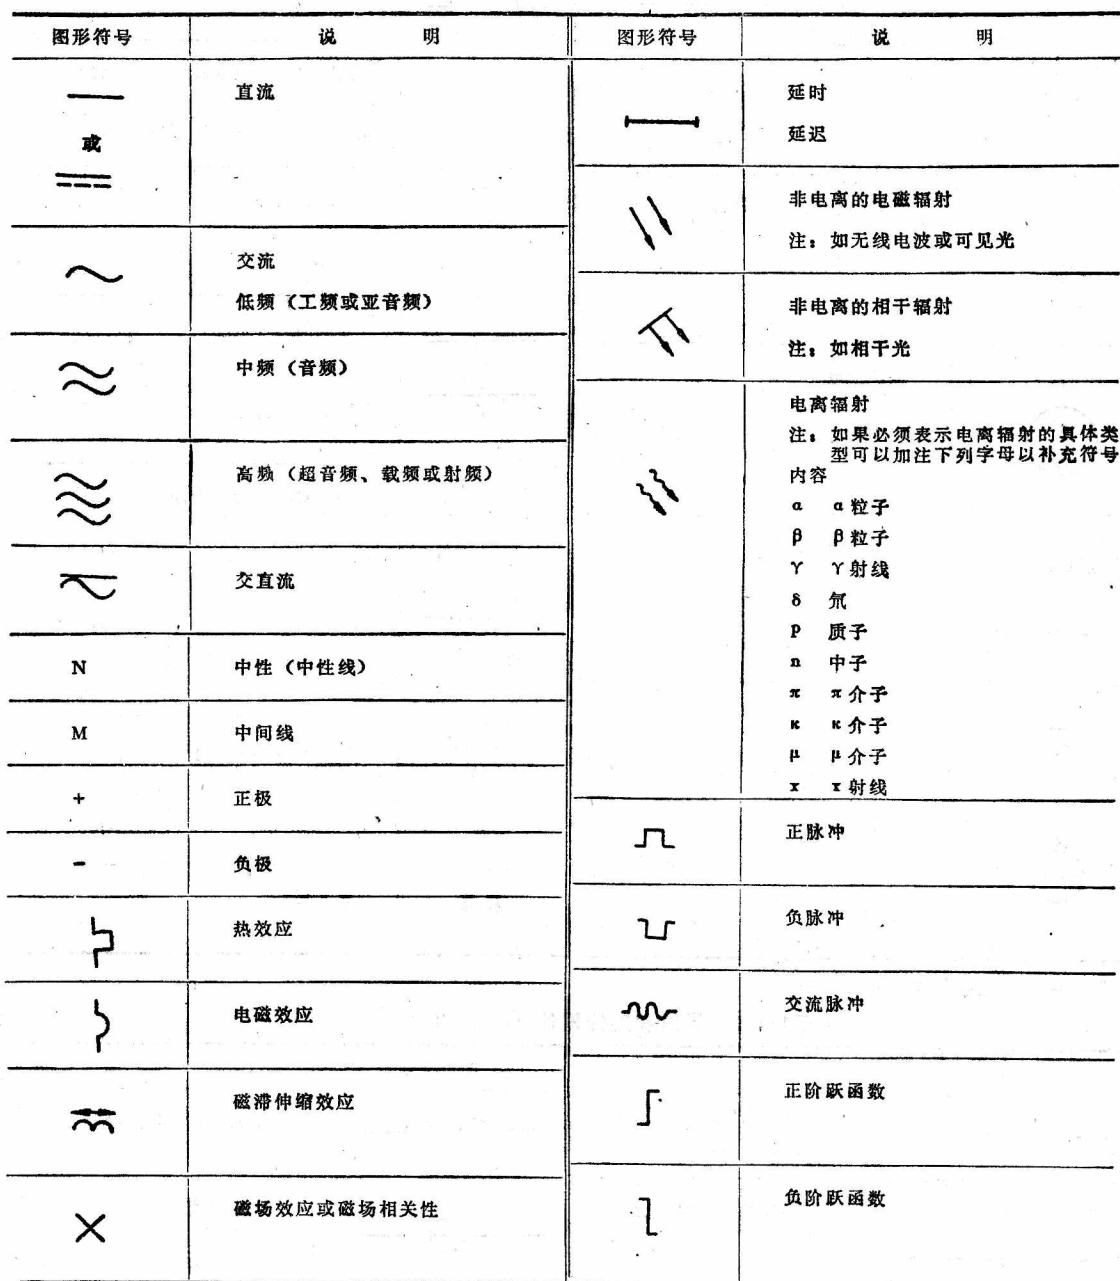 图形符号 说 明
或
直流
交流
低频（工频或亚音频）
中频（音频）
高频（超音频、载频或射频）
交直流
N 中性（中性线）
M 中间线
+ 正极
- 负极
热效应
电磁效应
磁滞伸缩效应
磁场效应或磁场相关性
图形符号 说 明
延时
延迟
非电离的电磁辐射
注：如无线电波或可见光
非电离的相干辐射
注：如相干光
电离辐射
注：如果必须表示电离辐射的具体类
型可以加注下列字母以补充符号
内容
α α粒子
β β粒子
γ γ射线
δ 氘
P 质子
n 中子
π π介子
κ κ介子
μ μ介子
x x射线
正脉冲
负脉冲
交流脉冲
正阶跃函数
负阶跃函数